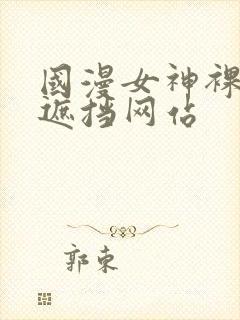 國漫女神裸
遮挡网佔
郭東